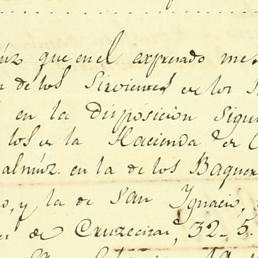 que en el expresado me
n de los Sirvientes en los
en la disposicion Sigu
los de la Hacienda de
en la de los Baquer
o, y la de San Ignacio,
de Cruzecitas, 32-5